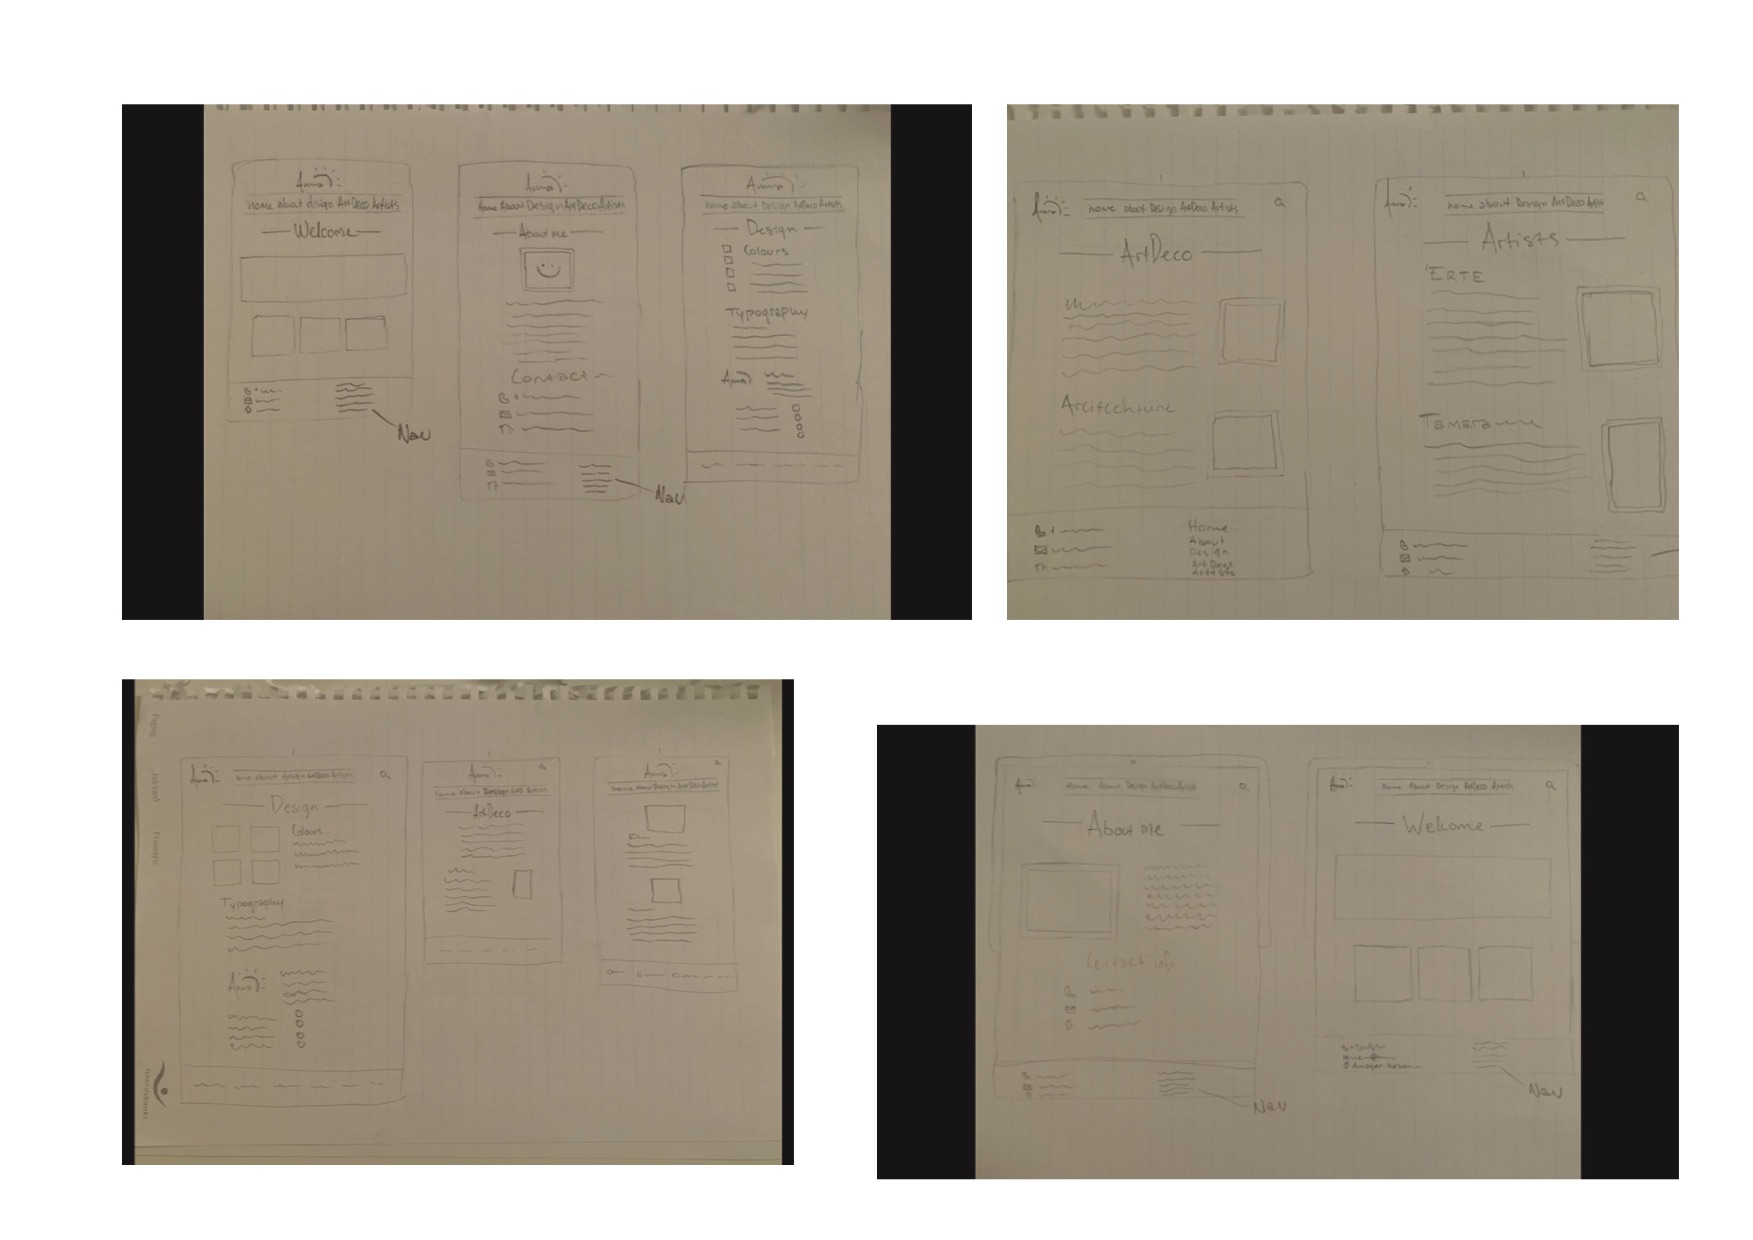 Anna
home about design ArtDeco Artists
Welcome
Nav
Anna
home About Design ArtDeco Artists
About me
Contact
Nav
Anna
home about Design ArtDeco Artists
Design
Colours
Typography
Anna
Anna
home about Design ArtDeco Artists
ArtDeco
Arcitechture
Home
About
Design
Art Deco
Artists
Anna
home about Design ArtDeco Artists
Artists
ERTE
Tamara
Anna
home about design ArtDeco Artists
Design
Colours
Typography
Anna
Anna
home about Design Art Artists
ArtDeco
Anna
home about Design ArtDeco Artists
Íslandsbanki
Anna
Home About Design ArtDeco Artists
About Me
Contact info
Nav
Anna
Home About Design ArtDeco Artists
Welcome
Nav